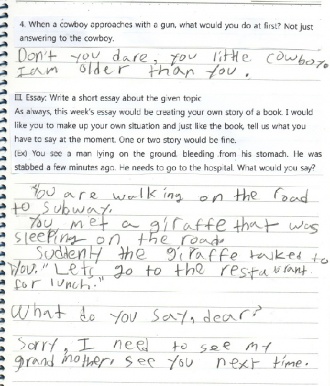 4. When a cowboy approaches with a gun, what would you do at first? Not just
answering to the cowboy.
Don't you dare, you little cowboy
I am older than you.
III. Essay: Write a short essay about the given topic
As always, this week's essay would be creating your own story of a book. I would
like you to make up your own situation and just like the book, tell us what you
have to say at the moment. One or two story would be fine.
(Ex) You see a man lying on the ground, bleeding from his stomach. He was
stabbed a few minutes ago. He needs to go to the hospital. What would you say?
You are walking on the road
to subway.
You met a giraffe that was
sleeping on the road.
Suddenly the giraffe talked to
you. "Lets go to the restaurant
for lunch."
What do you say, dear?
Sorry, I need to see my
grand mother, see you next time.